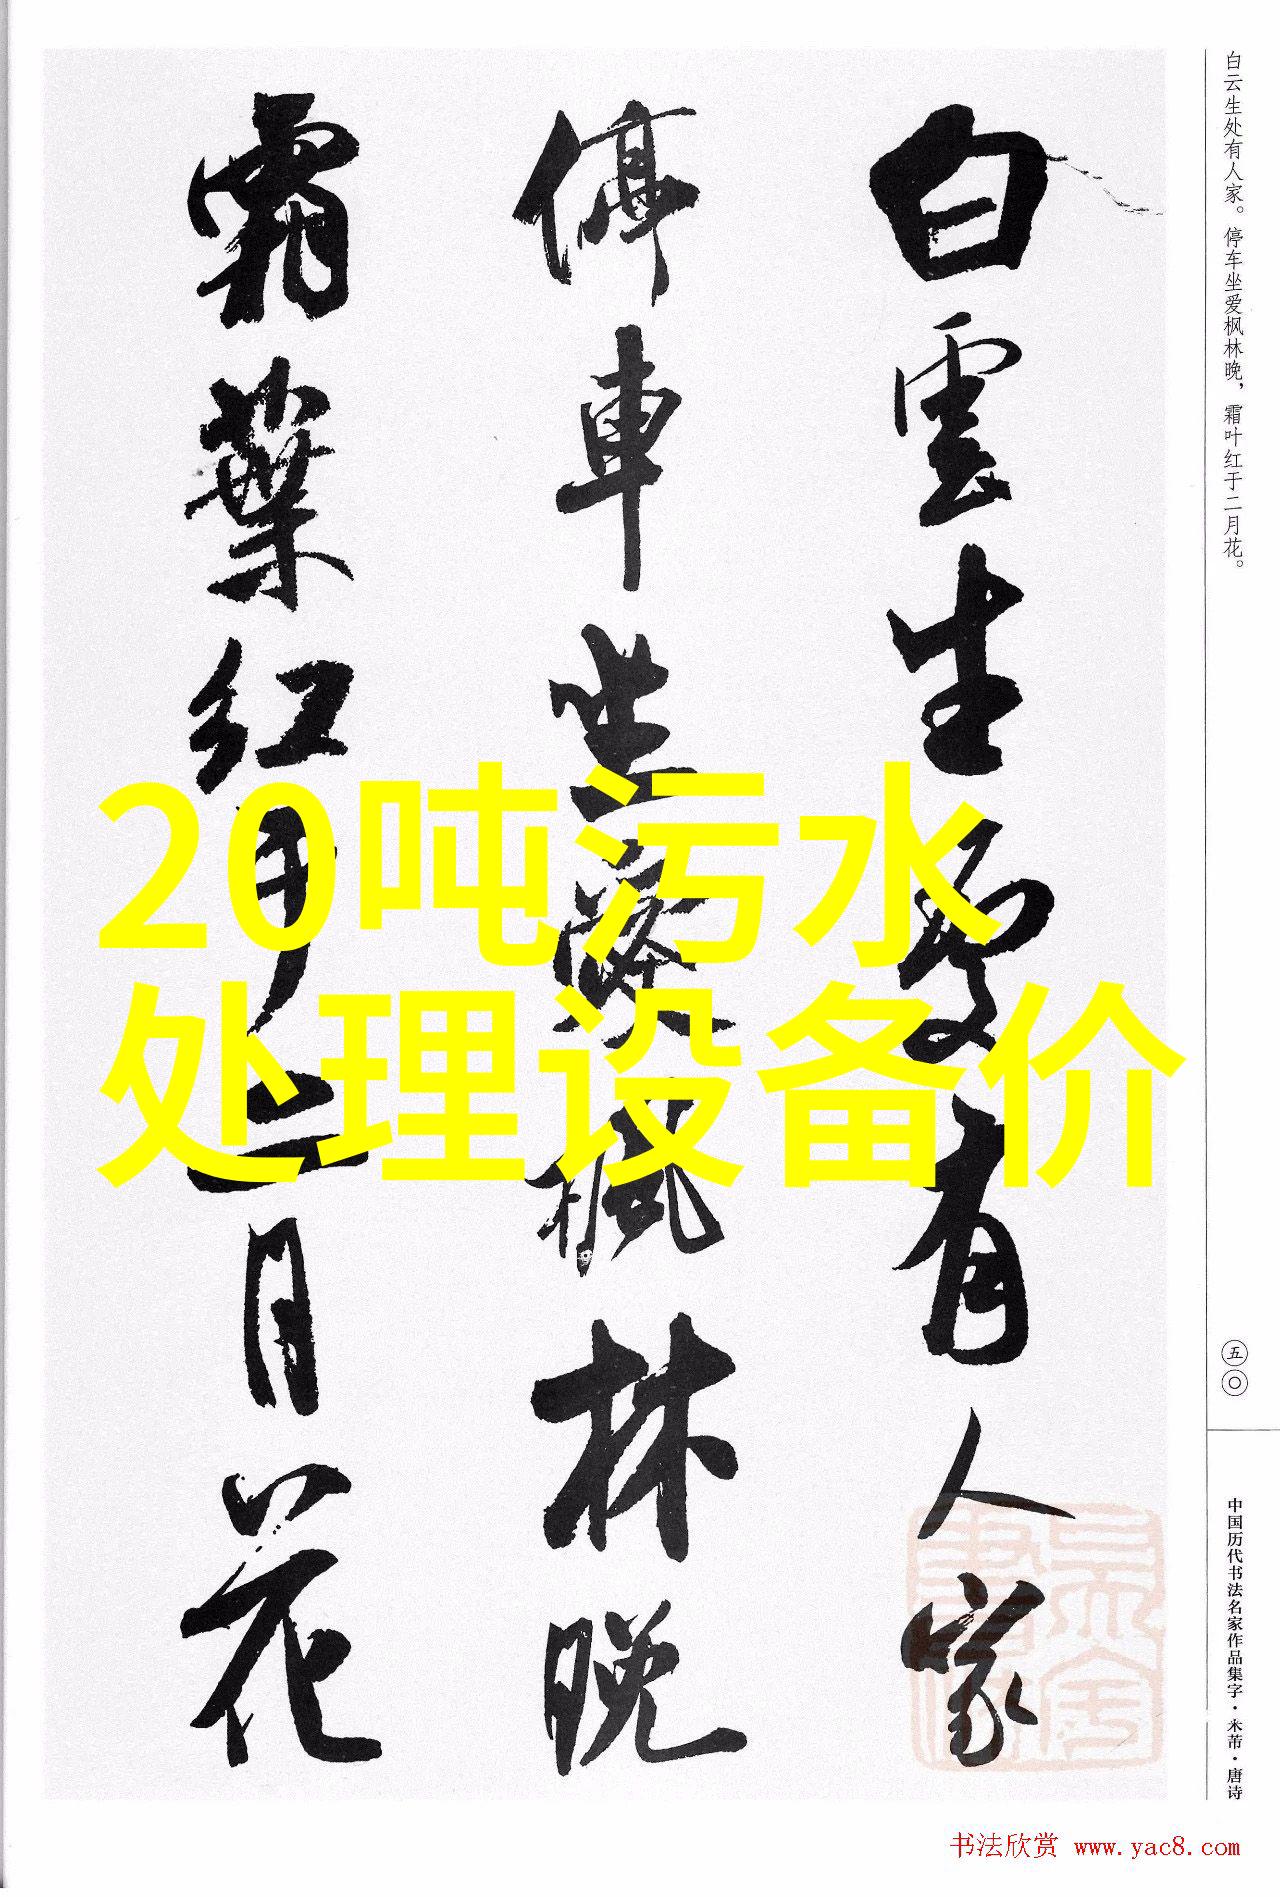 白雲生處有人家
停車坐愛楓林晚
霜葉紅于二月花
20吨污水
处理设备价
白云生处有人家。停车坐爱枫林晚，霜叶红于二月花。
五〇
中国历代书法名家作品集字·米芾·唐诗
书法欣赏 www.yac8.com